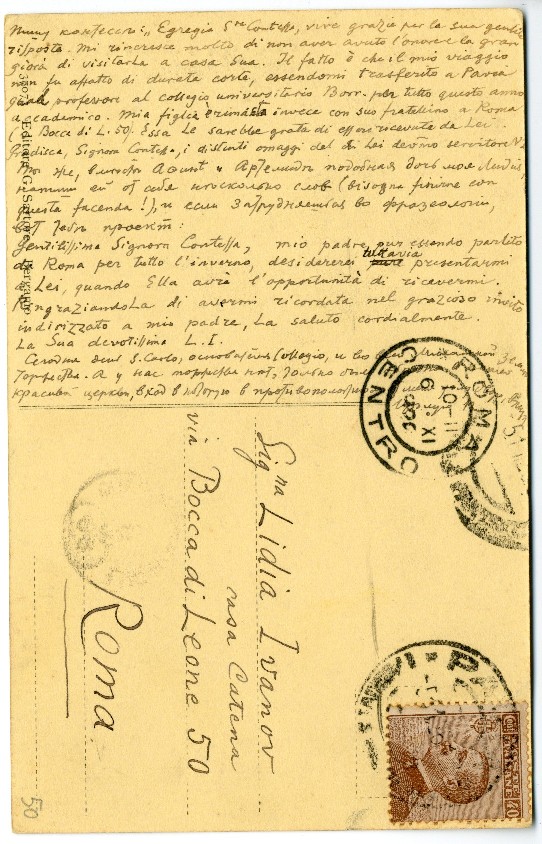 "Egregia S.ra Contessa, vive grazie per la sua gentile
risposta. Mi rincresce molto di non aver avuto l'onore e la gran
gioia di visitarla a casa Sua. Il fatto è che il mio viaggio
non fu affatto di durata corta, essendomi trasferito a Pavia
quale professore al collegio universitario Borr. per tutto questo anno
accademico. Mia figlia è rimasta invece con suo fratellino a Roma
(Bocca di L. 50). Essa Le sarebbe grata di esser ricevuta da Lei.
Gradisca, Signora Contessa, i distinti omaggi del di Lei devmo servitore
(bisogna finirne con
questa facenda!), и если затрудняешься во фразеологии,
вот тебе проект:
Gentilissima Signora Contessa, mio padre, pur essendo partito
da Roma per tutto l'inverno, desidererei tuttavia presentarmi
a Lei, quando Ella avrà l'opportunità di ricevermi.
RingraziandoLa di avermi ricordata nel grazioso invito
indirizzato a mio padre, La saluto cordialmente.
La Sua devotissima L. I.
Сегодня день S. Carlo, основателя Collegio, и во всей
торжества. А у нас торжества нет, только
красивой церкви, вход в которую в
ROMA
CENTRO
10-11
6 XI
Sig.na Lidia Ivanov
casa Catena
via Bocca di Leone 50
Roma
40
50